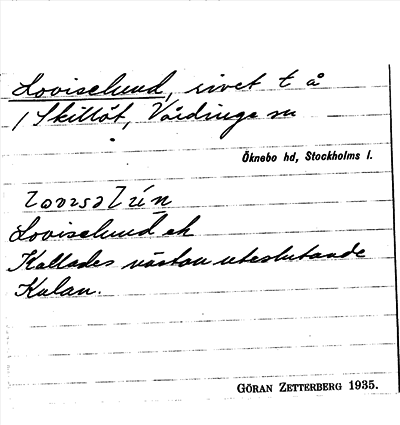 Loviselund, rivet t å
/ Skillöt, Vårdinge sn
Öknebo hd, Stockholms l.
Loviselund eh
Kallades nästan uteslutande
Kulan.
GÖRAN ZETTERBERG 1935.